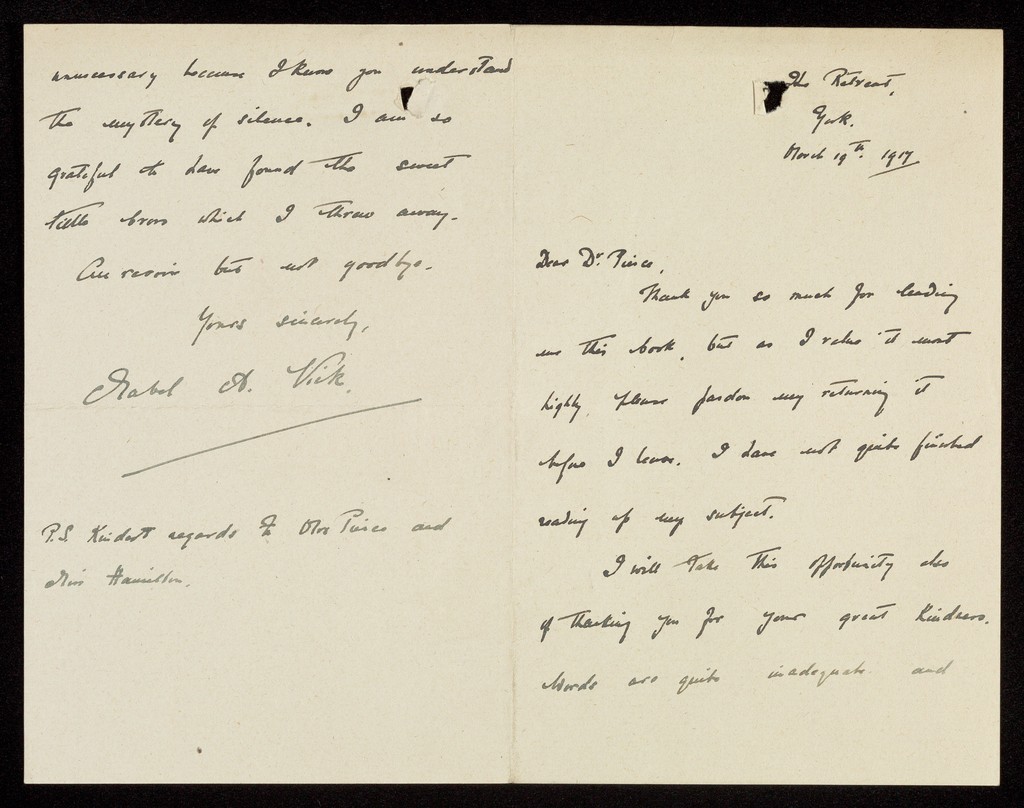 The Retreat,
York.
March 19th. 1917
Dear Dr. Pierce,
Thank you so much for lending
me this book, but as I value it most
highly please pardon my returning it
before I leave. I have not quite finished
reading up my subject.
I will take this opportunity also
of thanking you for your great kindness.
Words are quite inadequate and
unnecessary because I know you understand
the mystery of silence. I am so
grateful to have found the sweet
little which I threw away.
Au revoir but not goodbye.
Yours sincerely,
Mabel A. Vick.
P.S. Kindest regards to Mrs Pierce and
Miss Hamilton.